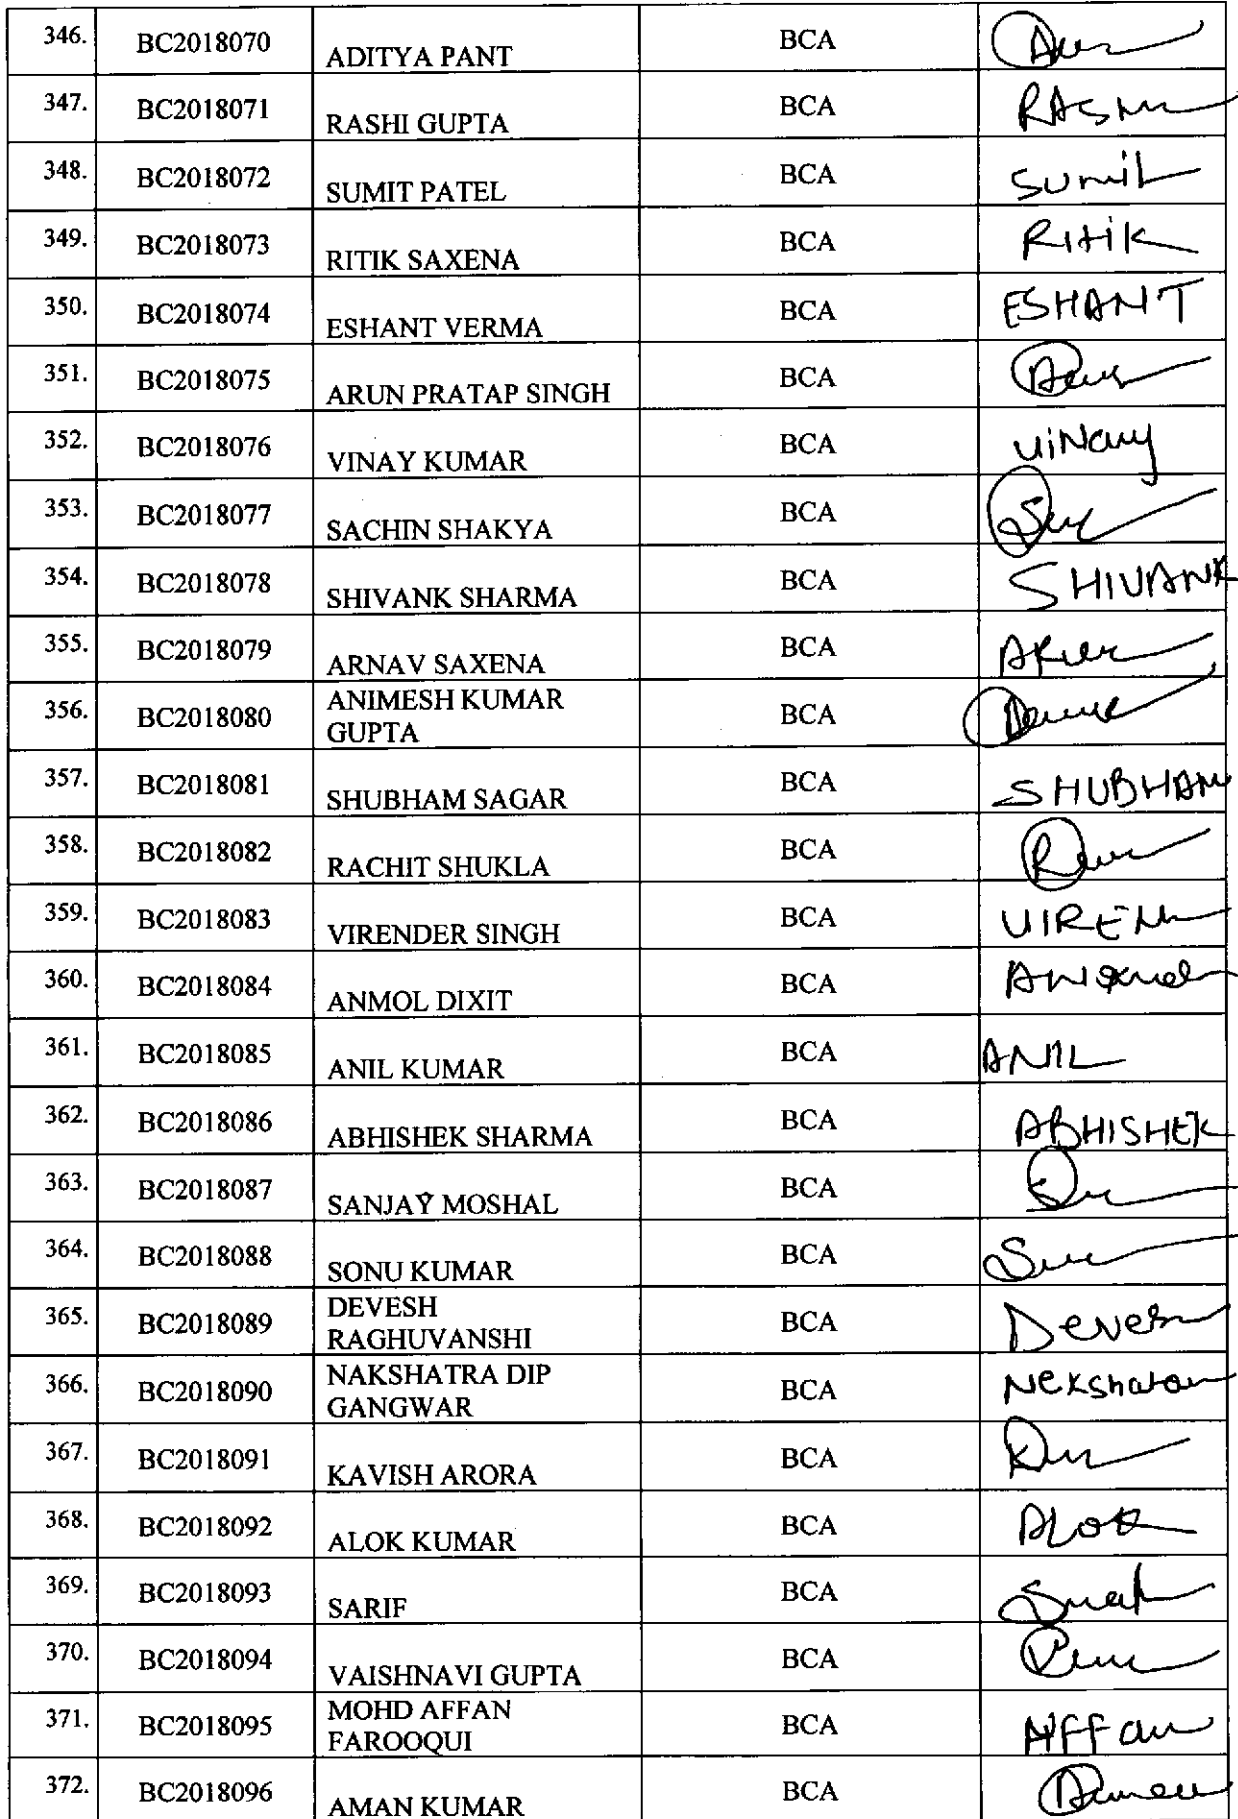 346. BC2018070 ADITYA PANT BCA
347. BC2018071 RASHI GUPTA BCA
348. BC2018072 SUMIT PATEL BCA Sumit
349. BC2018073 RITIK SAXENA BCA Ritik
350. BC2018074 ESHANT VERMA BCA ESHANT
351. BC2018075 ARUN PRATAP SINGH BCA
352. BC2018076 VINAY KUMAR BCA ViNay
353. BC2018077 SACHIN SHAKYA BCA
354. BC2018078 SHIVANK SHARMA BCA SHIVANK
355. BC2018079 ARNAV SAXENA BCA
356. BC2018080 ANIMESH KUMAR
GUPTA BCA
357. BC2018081 SHUBHAM SAGAR BCA SHUBHAM
358. BC2018082 RACHIT SHUKLA BCA
359. BC2018083 VIRENDER SINGH BCA VIREN
360. BC2018084 ANMOL DIXIT BCA
361. BC2018085 ANIL KUMAR BCA ANIL
362. BC2018086 ABHISHEK SHARMA BCA ABHISHEK
363. BC2018087 SANJAY MOSHAL BCA
364. BC2018088 SONU KUMAR BCA
365. BC2018089 DEVESH
RAGHUVANSHI BCA Devesh
366. BC2018090 NAKSHATRA DIP
GANGWAR BCA
367. BC2018091 KAVISH ARORA BCA
368. BC2018092 ALOK KUMAR BCA ALOK
369. BC2018093 SARIF BCA
370. BC2018094 VAISHNAVI GUPTA BCA
371. BC2018095 MOHD AFFAN
FAROOQUI BCA AFFan
372. BC2018096 AMAN KUMAR BCA